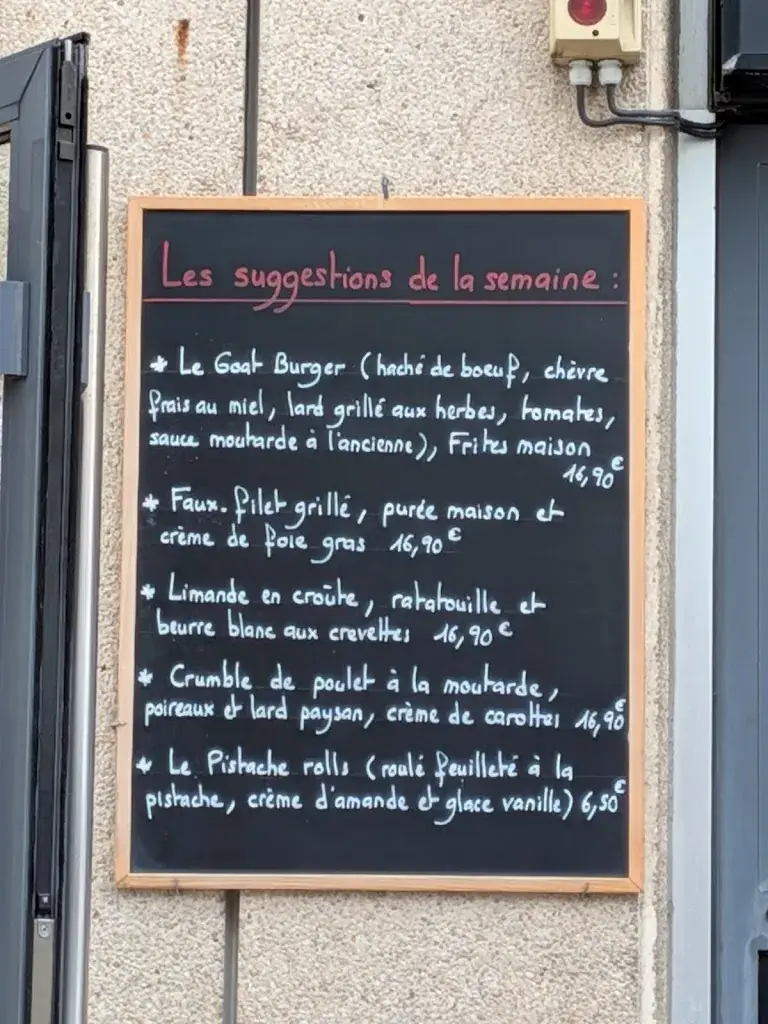 Les suggestions de la semaine :
* Le Goat Burger (haché de boeuf, chèvre
frais au miel, lard grillé aux herbes, tomates,
sauce moutarde à l'ancienne), Frites maison
16,90€
* Faux-filet grillé, purée maison et
crème de foie gras 16,90€
* Limande en croûte, ratatouille et
beurre blanc aux crevettes 16,90€
* Crumble de poulet à la moutarde,
poireaux et lard paysan, crème de carottes 16,90€
* Le Pistache rolls (roulé feuilleté à la
pistache, crème d'amande et glace vanille) 6,50€